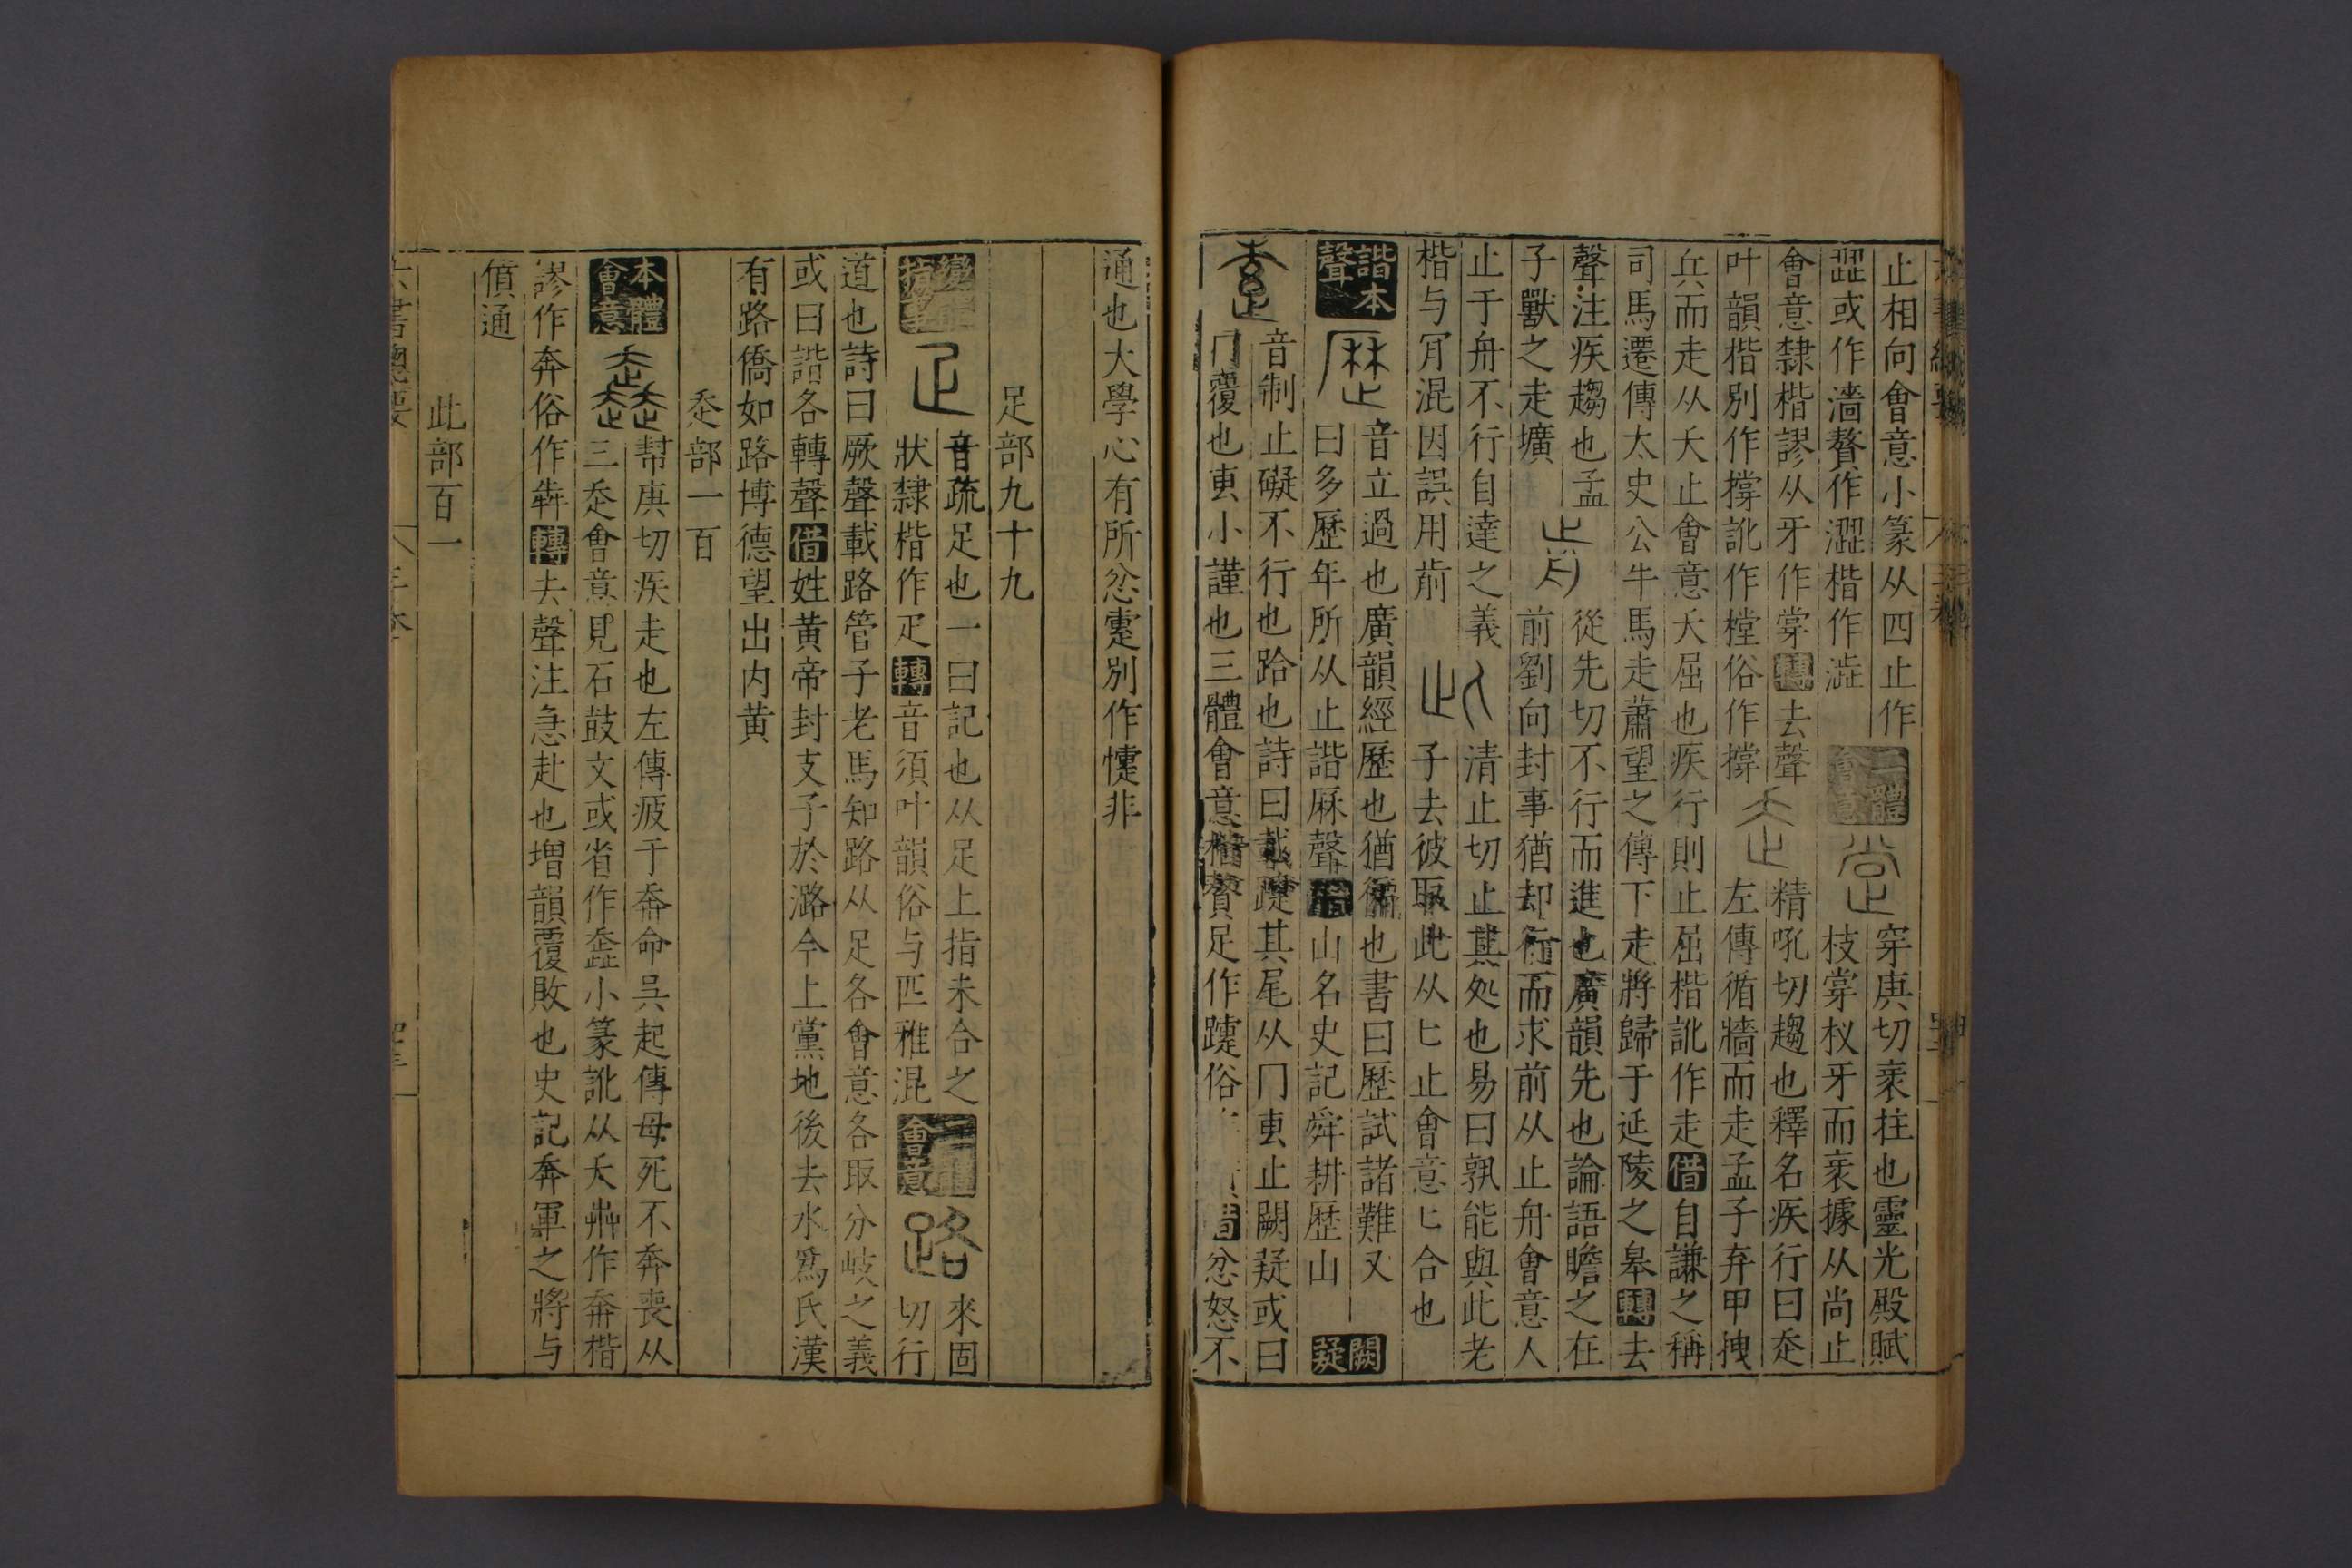 止相向會意小篆从四止作
歰或作濇贅作澀楷作澁 二體會意 堂 穿庚切衺柱也靈光殿賦
枝牚杈牙而衺據从尚止
會意隸楷謬从牙作牚轉去聲
叶韻楷別作撐訛作樘俗作撐 走 精吼切趨也釋名疾行曰走
左傳循牆而走孟子弃甲拽
兵而走从夭止會意夭屈也疾行則止屈楷訛作走借自謙之稱
司馬遷傳太史公牛馬走蕭望之傳下走將歸于延陵之皋轉去
聲注疾趨也孟
子獸之走壙 歬 從先切不行而進也廣韻先也論語瞻之在
前劉向封事猶却行而求前从止舟會意人
止于舟不行自達之義
楷与冐混因誤用前 此 清止切止其処也易曰孰能與此老
子去彼取此从匕止會意匕合也
諧本聲 歷 音立過也廣韻經歷也猶循也書曰歷試諸難又
曰多歷年所从止諧厤聲借山名史記舜耕歴山 闕疑
疐 音制止礙不行也跲也詩曰載疐其尾从冂叀止闕疑或曰
冂覆也叀小謹也三體會意楷贅足作躓俗 借忿怒不
通也大學心有所忿疐別作懥非
足部九十九
變體 疋 音疏足也一曰記也从足上指未合之
狀隸楷作疋轉音須叶韻俗与匹雅混 二體會意 路 來固切行
道也詩曰厥聲載路管子老馬知路从足各會意各取分岐之義
或曰諧各轉聲借姓黄帝封支子於潞今上黨地後去水爲氏漢
有路僑如路博德望出内黄
走部一百
本體會意 奔 幇庚切疾走也左傳疲于奔命吳起傳母死不奔喪从
三走會意見石鼓文或省作犇小篆訛从夭卉作奔楷
謬作奔俗作犇轉去聲注急赴也增韻覆敗也史記奔軍之將与
僨通
此部百一
六書總要